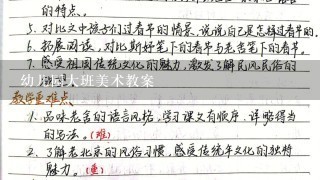 的特点。
5.对比文中孩子们过春节的情景,说说自己是怎样过春节的。
6.拓展阅读,对比斯好笔下的春节与老舍笔下的春节。
7.感受祖国传统文化的魅力,激发了解民风民俗的
幼儿园大班美术教案
教学重难点
1.品味老舍的语言风格,学习课文有顺序、详略得当
的写法。(难)
2.了解老北京的风俗习惯,感受传统年文化的独特
魅力。(重)